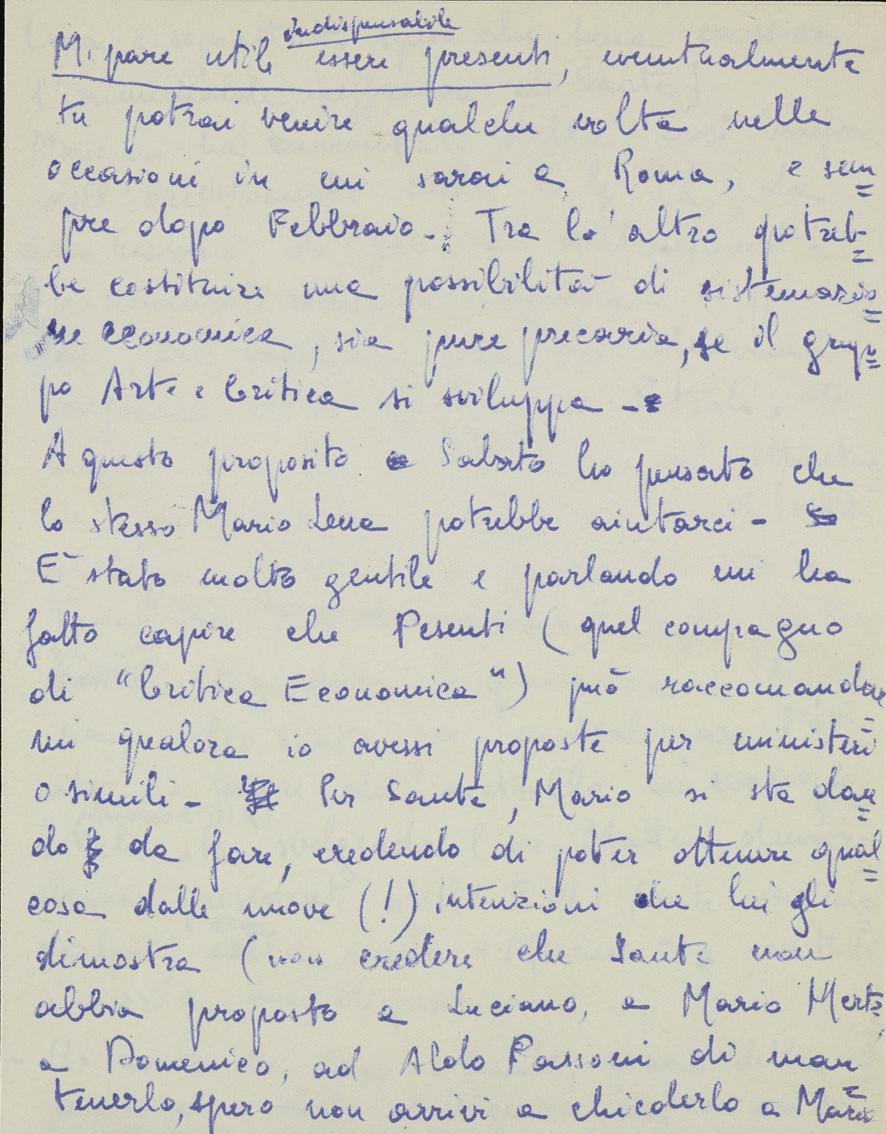 indispensabile
Mi pare utile essere presenti, eventualmente
tu potrai venire qualche volta nelle
occasioni in cui sarai a Roma, e sem=
pre dopo Febbraio. Tra l'altro potreb=
be costituire una possibilità di sistemazio=
ne economica, sia pure precaria, se il grup=
po Arte e Critica si sviluppa -
A questo proposito Sabato ho pensato che
lo stesso Mario Lena potrebbe aiutarci -
È stato molto gentile e parlando mi ha
fatto capire che Pesenti (quel compagno
di "Critica Economica") può raccomandar=
mi qualora io avessi proposte per ministeri
o simili - Per Sante, Mario si sta dan=
do da fare, credendo di poter ottenere qual=
cosa dalle nuove (!) intenzioni che lui gli
dimostra (non credere che Sante non
abbia proposto a Luciano, a Mario Merz,
a Domenico, ad Aldo Passoni di man=
tenerlo, spero non arrivi a chiederlo a Mario